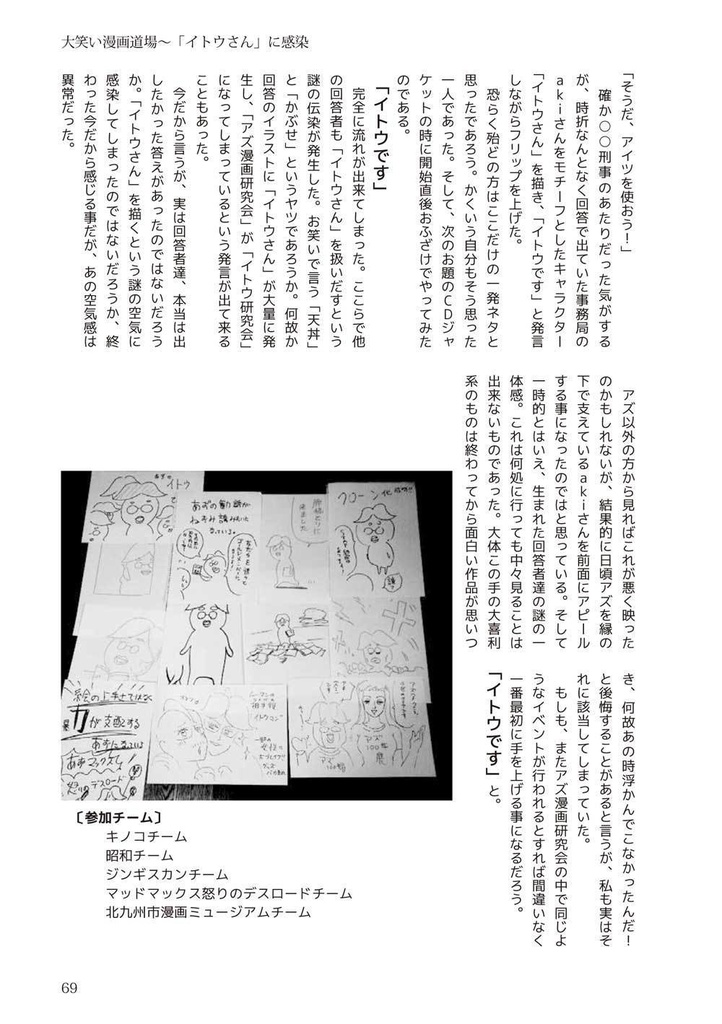 大笑い漫画道場～「イトウさん」に感染
「そうだ、アイツを使おう！」
確か○○刑事のあたりだった気がする
が、時折なんとなく回答で出ていた事務局の
akiさんをモチーフとしたキャラクター
「イトウさん」を描き、「イトウです」と発言
しながらフリップを上げた。
恐らく殆どの方はここだけの一発ネタと
思ったであろう。かくいう自分もそう思った
一人であった。そして、次のお題のCDジャ
ケットの時に開始直後おふざけでやってみた
のである。
「イトウです」
完全に流れが出来てしまった。ここらで他
の回答者も「イトウさん」を扱いだすという
謎の伝染が発生した。お笑いで言う「天丼」
と「かぶせ」というヤツであろうか。何故か
回答のイラストに「イトウさん」が大量に発
生し、「アズ漫画研究会」が「イトウ研究会」
になってしまっているという発言が出て来る
こともあった。
今だから言うが、実は回答者達、本当は出
したかった答えがあったのではないだろう
か。「イトウさん」を描くという謎の空気に
感染してしまったのではないだろうか、終
わった今だから感じる事だが、あの空気感は
異常だった。
アズ以外の方から見ればこれが悪く映った
のかもしれないが、結果的に日頃アズを縁の
下で支えているakiさんを前面にアピール
する事になったのではと思っている。そして
一時的とはいえ、生まれた回答者達の謎の一
体感。これは何処に行っても中々見ることは
出来ないものであった。大体この手の大喜利
系のものは終わってから面白い作品が思いつ
き、何故あの時浮かんでこなかったんだ！
と後悔することがあると言うが、私も実はそ
れに該当してしまっていた。
もしも、またアズ漫画研究会の中で同じよ
うなイベントが行われるとすれば間違いなく
一番最初に手を上げる事になるだろう。
「イトウです」と。
あずの
イトウ
あずの勧誘が
ねずみ講みたいに
なっている。
クローン化
絵の上手さではなく
力が支配する
あずになっている
あずマックス
怒りのデスロード
アズ
100%
〔参加チーム〕
キノコチーム
昭和チーム
ジンギスカンチーム
マッドマックス怒りのデスロードチーム
北九州市漫画ミュージアムチーム
69